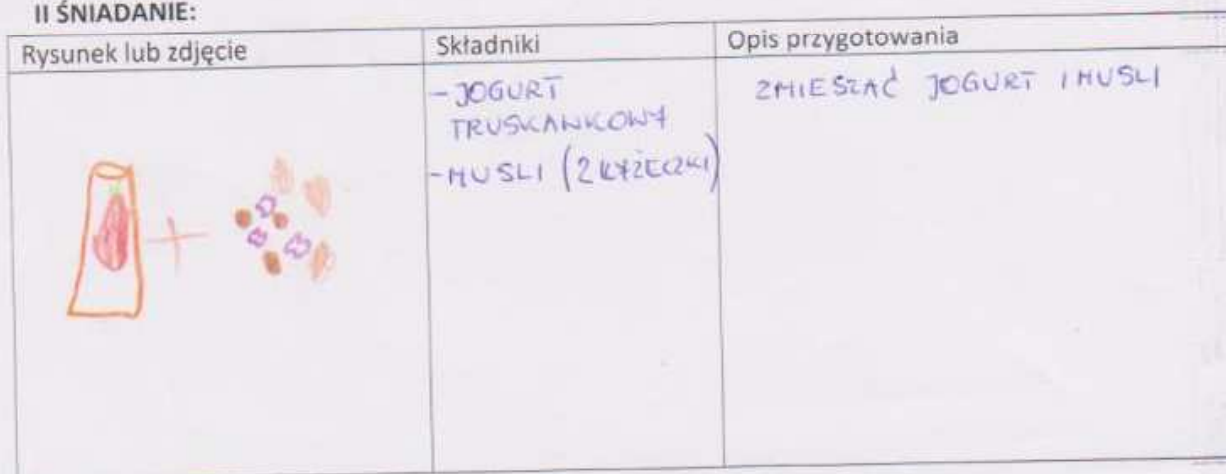 II ŚNIADANIE:
Rysunek lub zdjęcie
Składniki
Opis przygotowania
- JOGURT
TRUSKAWKOWY
- MUSLI (2 ŁYŻECZKI)
ZMIESZAĆ JOGURT I MUSLI